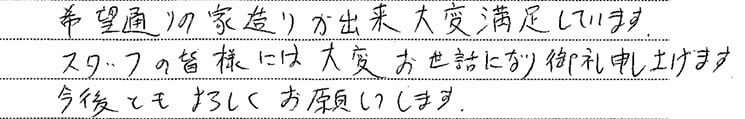 希望通りの家造りが出来大変満足しています.
スタッフの皆様には大変お世話になり御礼申し上げます
今後ともよろしくお願いします.